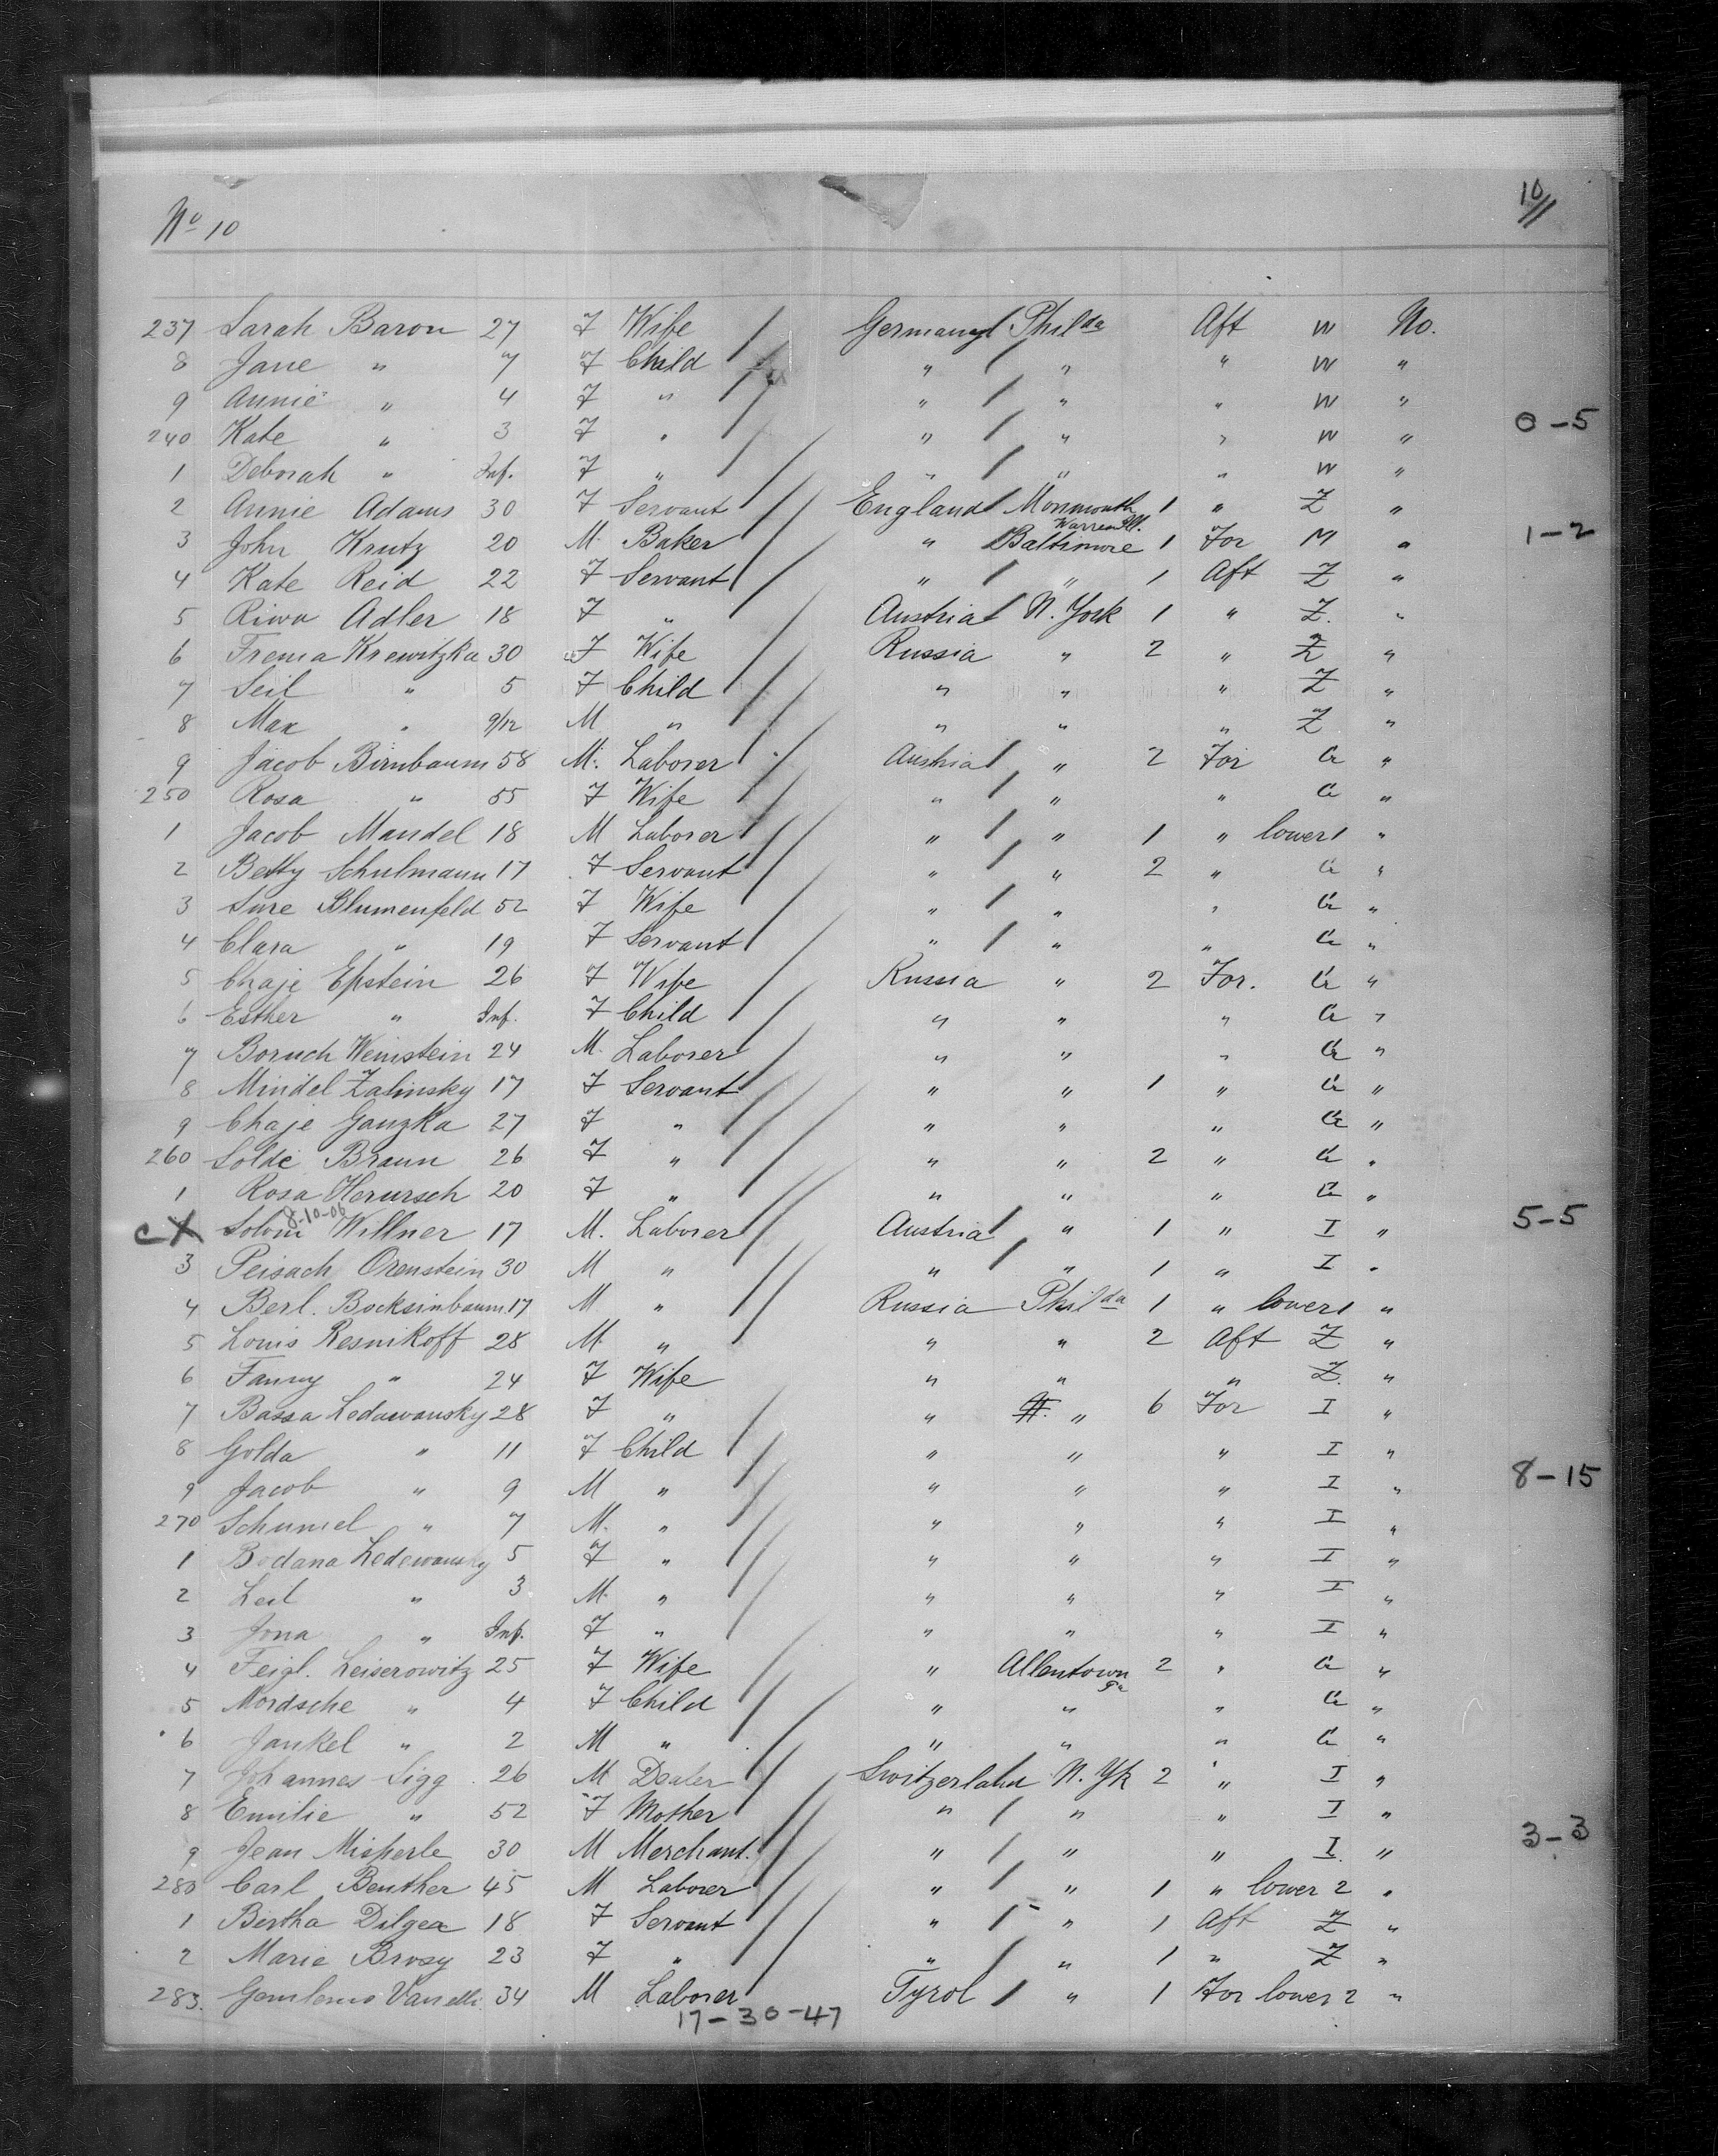 No 10 10
237 Sarah Baron 27 F Wife Germany Philda Aft W No.
8 Jane " 7 F Child " " " W "
9 Annie " 4 F " " " " W "
0-5
240 Kate " 3 F " " " " W "
1 Deborah " Inf. F " " " " W "
2 Annie Adams 30 F Servant England Monmouth 1 " Z "
Warren Ill.
1-2
3 John Krutz 20 M. Baker " Baltimore 1 For M "
4 Kate Reid 22 F Servant " " 1 Aft Z "
5 Riwa Adler 18 F " Austria N. York 1 " Z. "
6 Frema Krewitzka 30 F Wife Russia " 2 " Z "
7 Seil " 5 F Child " " " Z "
8 Max " 9/12 M " " " " Z "
9 Jacob Birnbaum 58 M. Laborer Austria " 2 For G "
250 Rosa " 55 F Wife " " " G "
1 Jacob Mandel 18 M Laborer " " 1 " lower 1 "
2 Betty Schulmann 17 F Servant " " 2 " G "
3 Sure Blumenfeld 52 F Wife " " " G "
4 Clara " 19 F Servant " " " G "
5 Chaje Epstein 26 F Wife Russia " 2 For. G "
6 Esther " Inf. F Child " " " G "
7 Boruch Weinstein 24 M. Laborer " " " G "
8 Mindel Zalinsky 17 F Servant " " 1 " G "
9 Chaje Ganzka 27 F " " " " G "
260 Solde Braun 26 F " " " 2 " G "
1 Rosa Herursch 20 F " " " " G "
8-10-06
5-5
cX Solom Willner 17 M. Laborer Austria " 1 " I "
3 Peisach Orenstein 30 M " " " 1 " I "
4 Berl. Bocksinbaum 17 M " Russia Philda 1 " lower 1 "
5 Louis Resnikoff 28 M. " " " 2 Aft Z "
6 Fanny " 24 F Wife " " " Z. "
7 Bassa Ledawansky 28 F " " " 6 For I "
8 Golda " 11 F Child " " " I "
8-15
9 Jacob " 9 M " " " " I "
270 Schumel " 7 M. " " " " I "
1 Bodana Ledewansky 5 F " " " " I "
2 Leil " 3 M. " " " " I "
3 Jona " Inf. F " " " " I "
4 Feigl. Leiserowitz 25 F Wife " Allentown Pa 2 " G "
5 Mordsche " 4 F Child " " " G "
6 Jankel " 2 M " " " " G "
7 Johannes Sigg 26 M Dealer Switzerland N. Yk 2 " I "
8 Emilie " 52 F Mother " " " I "
3-3
9 Jean Misperle 30 M Merchant. " " " I. "
280 Carl Benther 45 M Laborer " " 1 " lower 2 "
1 Bertha Dilger 18 F Servant " " 1 Aft Z "
2 Marie Brosy 23 F " " " 1 " Z "
283. Vanelli 34 M Laborer Tyrol " 1 For lower 2 "
17-30-47